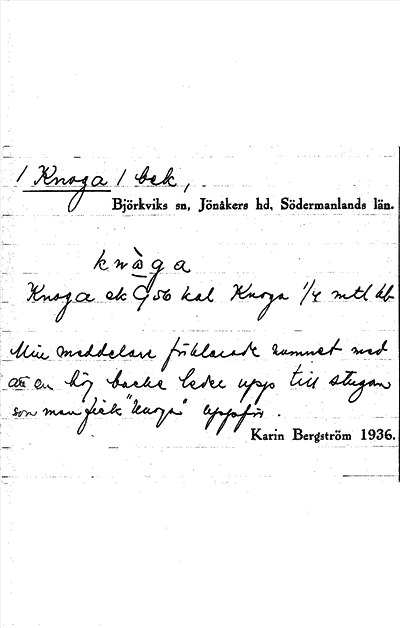 / Knoga / bek,
Björkviks sn, Jönåkers hd, Södermanlands län.
knåga
Knoga ek 56 kal Knoga 1/4 mtl
Min meddelare förklarade namnet med
att en hög backe leder upp till stugan
som man fick "knoga" uppför.
Karin Bergström 1936.